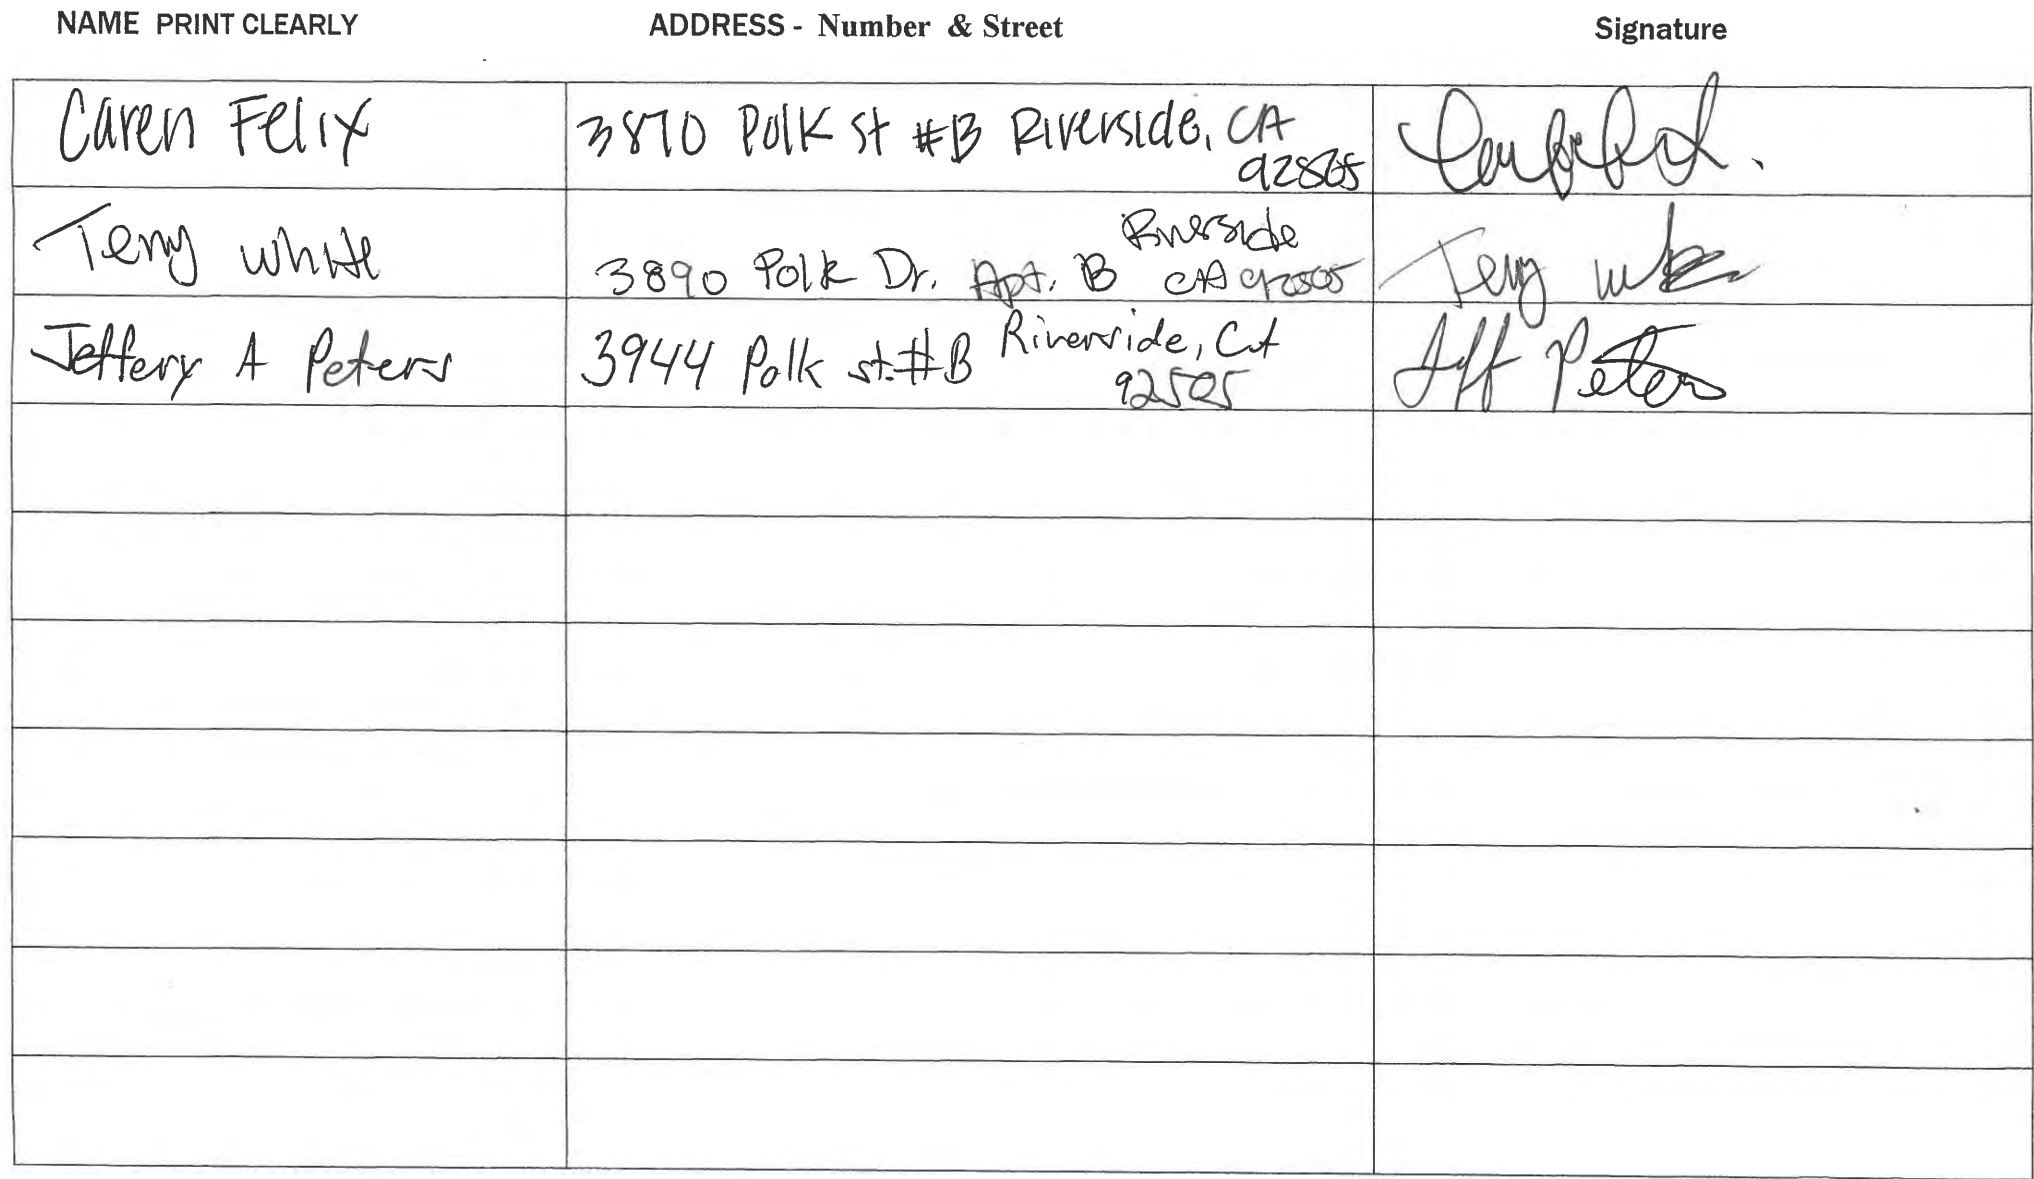 NAME PRINT CLEARLY ADDRESS - Number & Street Signature
Caren Felix 3870 Polk St #B Riverside, CA
92505
Terry White 3890 Polk Dr. Apt. B Riverside
CA 92505 Terry
Jeffery A Peters 3944 Polk st. #B Riverside, CA
92505 Jeff Peters